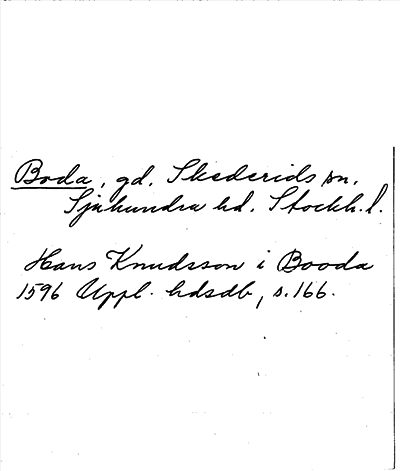 Boda, gd. Skederids sn.
Sjuhundra hd. Stockh. l.
Hans Knudsson i Booda
1596 Uppl. hdsdb, s. 166.